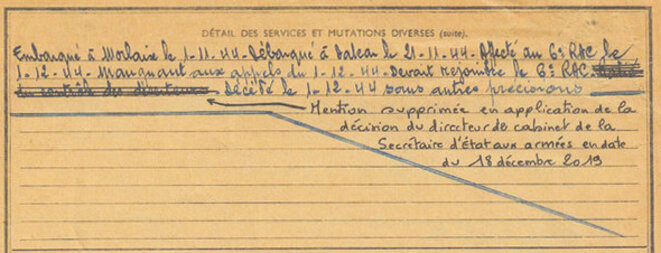 DÉTAIL DES SERVICES ET MUTATIONS DIVERSES (suite).
Embarqué à Morlaix le 1-11-44. Débarqué à Dakar le 21-11-44. Affecté au 6e RAC le
1-12-44. Manquant aux appels du 1-12-44. Devait rejoindre le 6e RAC.
du contrôle des déserteurs décédé le 1-12-44 sans autres précisions
Mention supprimée en application de la
décision du directeur de cabinet de la
Secrétaire d'État aux armées en date
du 18 décembre 2019